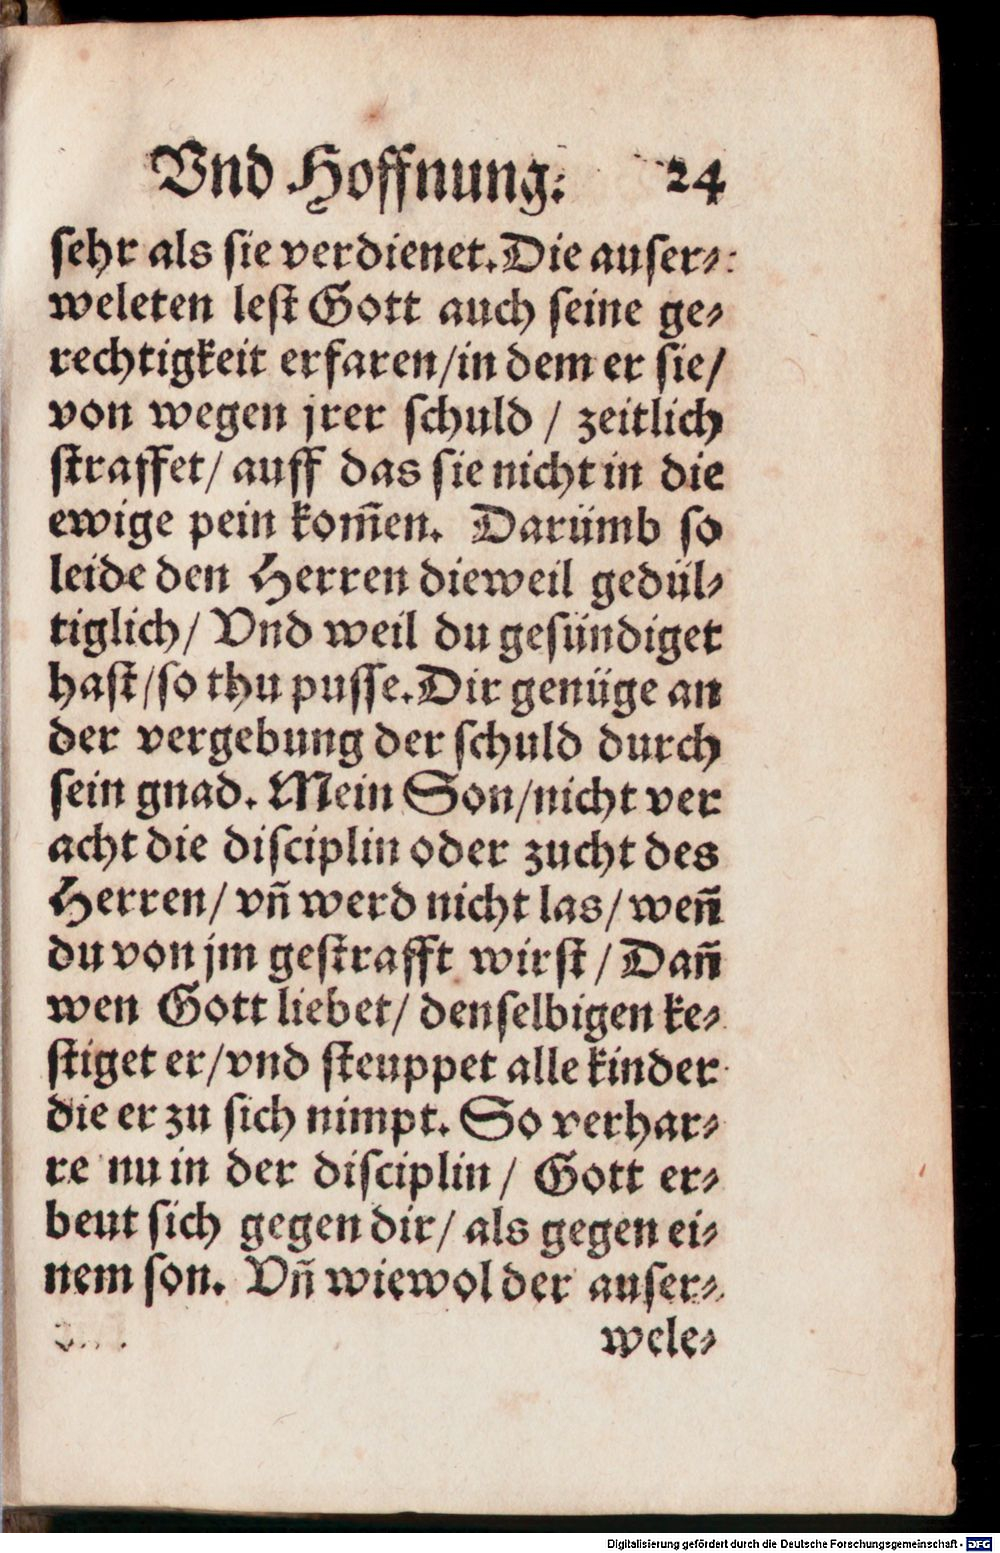 Vnd Hoffnung. 24
sehr als sie verdienet. Die auser⸗
weleten lest Gott auch seine ge⸗
rechtigkeit erfaren/in dem er sie/
von wegen jrer schuld / zeitlich
straffet/ auff das sie nicht in die
ewige pein kom̃en. Darümb so
leide den Herren dieweil gedül⸗
tiglich/ Vnd weil du gesündiget
hast/so thu pusse. Dir genüge an
der vergebung der schuld durch
sein gnad. Mein Son/nicht ver
acht die disciplin oder zucht des
Herren/ vñ werd nicht las/ weñ
du von jm gestrafft wirst / Dañ
wen Gott liebet/ denselbigen ke⸗
stiget er/vnd steuppet alle kinder
die er zu sich nimpt. So verhar⸗
re nu in der disciplin/ Gott er⸗
beut sich gegen dir/ als gegen ei⸗
nem son. Vñ wiewol der auser⸗
wele⸗
Digitalisierung gefördert durch die Deutsche Forschungsgemeinschaft - DFG